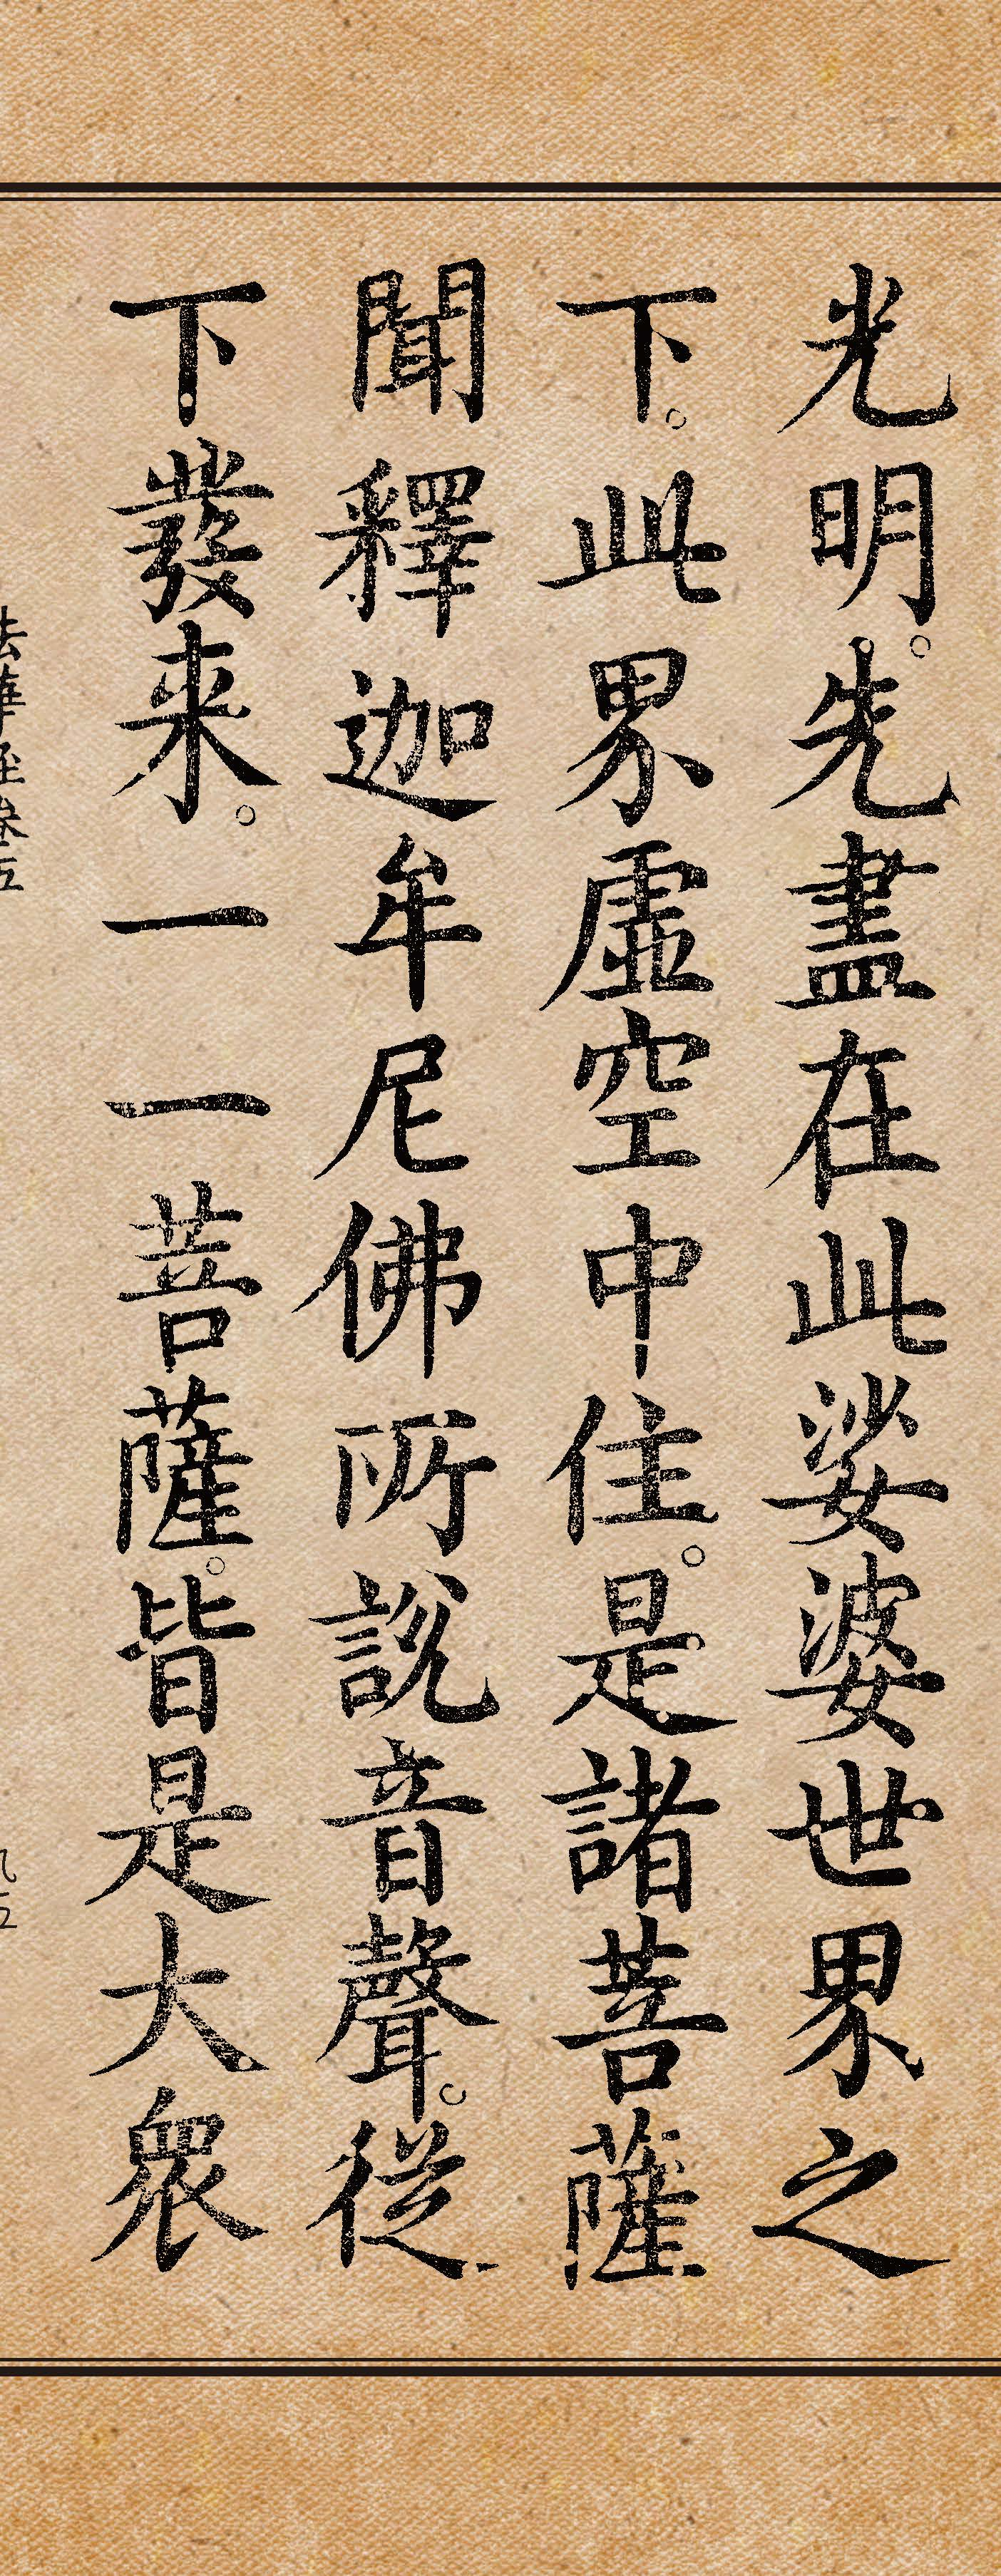 光明。先盡在此娑婆世界之
下。此界虛空中住。是諸菩薩
聞釋迦牟尼佛所說音聲。從
下發来。一一菩薩。皆是大衆
法華經卷五
九五